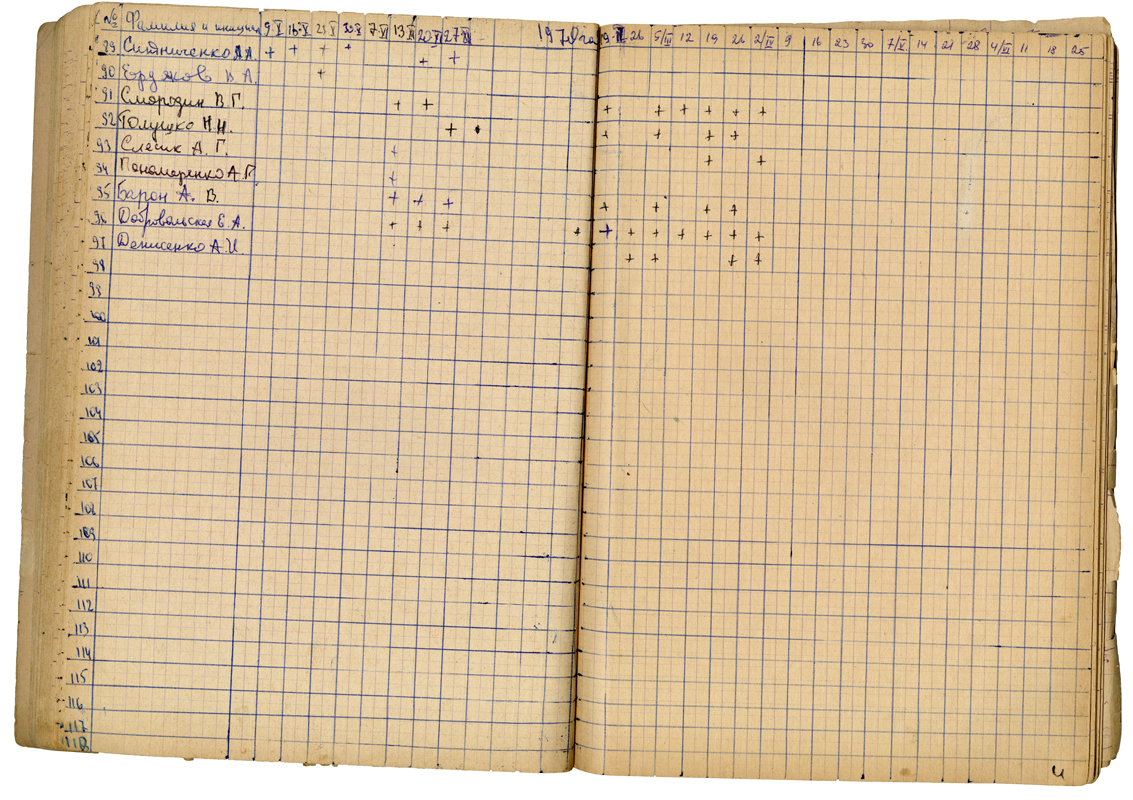 № Фамилия и инициалы 9·X 16·X 23 X 30·X 7 XI 13 XI 20 XI 27 XI 1970 год 19 II 26 5/III 12 19 26 2/IV 9 16 23 30 7/V 14 21 28 4/VI 11 18 25
89 Ситниченко А.А. + + + + + +
90 В А. +
91 Смородин В Г. + + + + + + + +
92 Голушко Н Н. + + + + + +
93 Слесик А. Г. + + +
94 Пономаренко А Г. +
95 Барон А. В. + + + + + + +
96 Добровольская Е. А. + + + + + + + + + + +
97 Денисенко А. И. + + + +
98
99
100
101
102
103
104
105
106
107
108
109
110
111
112
113
114
115
116
117
118
4